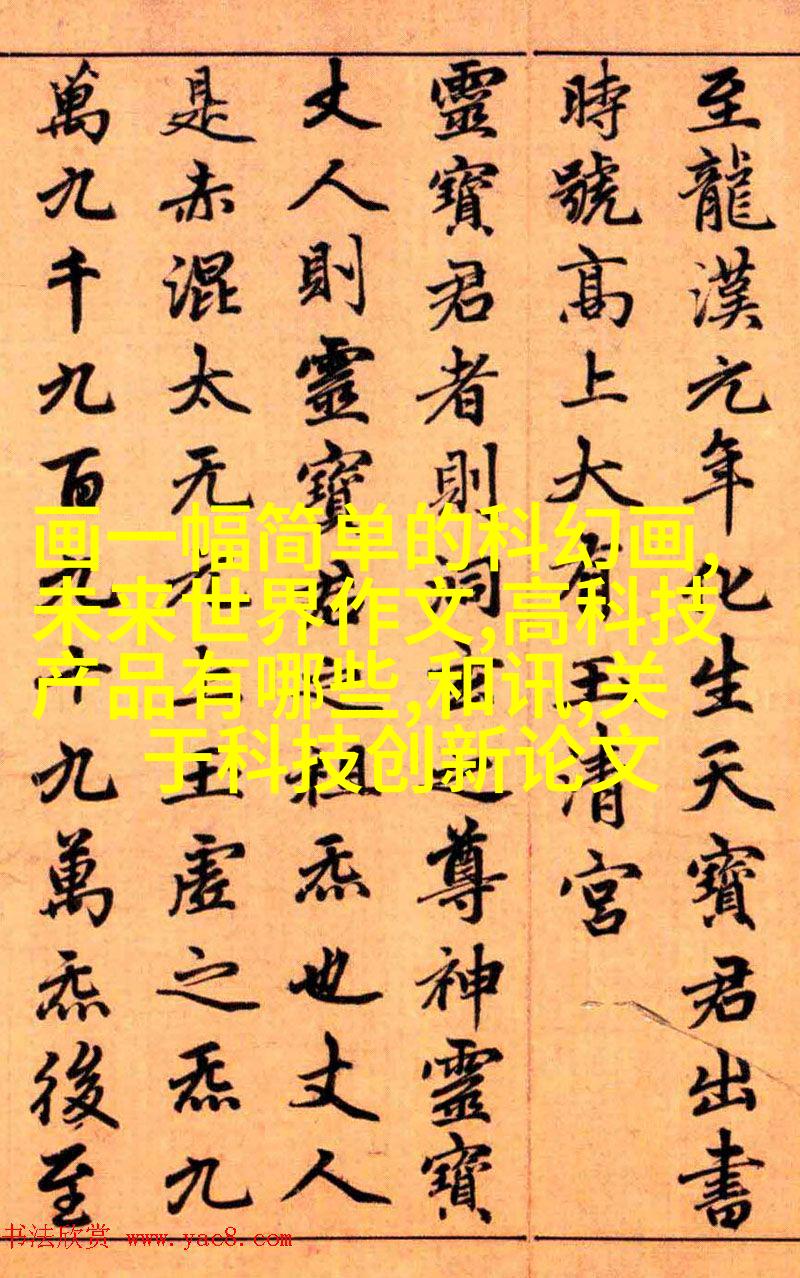 至龍漢元年化生天寶君出書
時號高上大有玉清宮
靈寶君者則洞玄之尊神靈寶
丈人則靈寶君之祖炁也丈人
是赤混太无元上玉虛之炁九
萬九千九百九十九萬炁後至
画一幅简单的科幻画,
未来世界作文,高科技
产品有哪些,和讯,关
于科技创新论文
书法欣赏 www.yac8.com